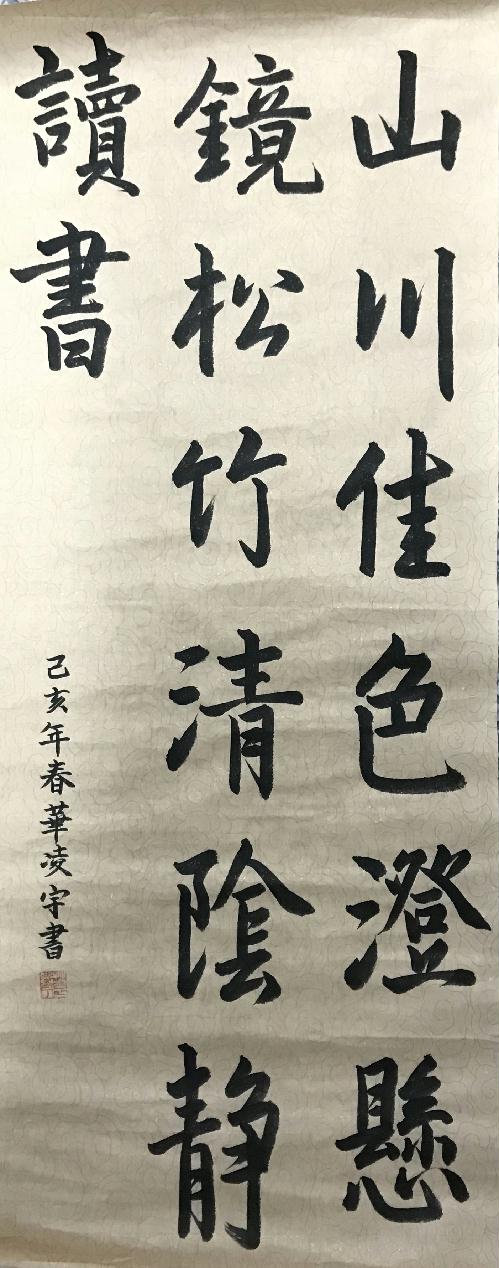 山川佳色澄懸
鏡松竹清陰静
讀書
己亥年春華凌宇書